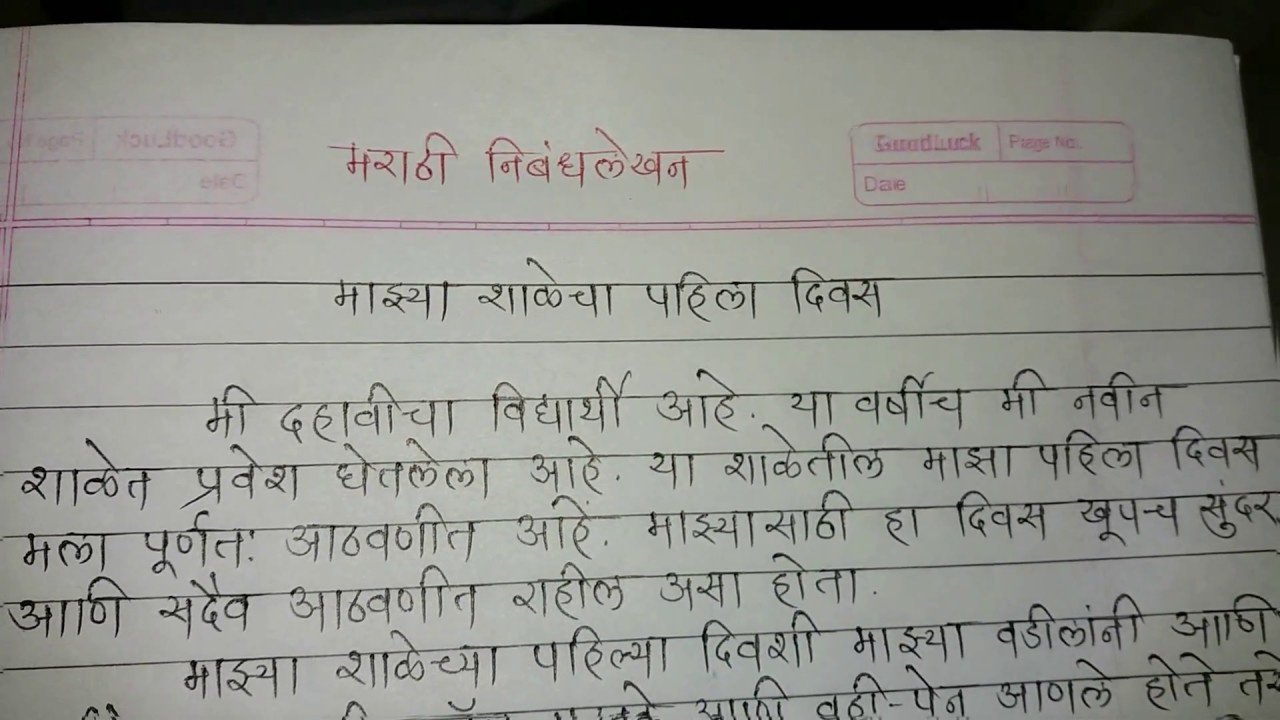 मराठी निबंधलेखन
GoodLuck Page No.
Date
माझ्या शाळेचा पहिला दिवस
मी दहावीचा विद्यार्थी आहे. या वर्षीच मी नवीन
शाळेत प्रवेश घेतलेला आहे. या शाळेतील माझा पहिला दिवस
मला पूर्णत: आठवणीत आहे. माझ्यासाठी हा दिवस खूपच सुंदर
आणि सदैव आठवणीत राहील असा होता.
माझ्या शाळेच्या पहिल्या दिवशी माझ्या वडीलांनी आणि
आणी वही-पेन आणले होते